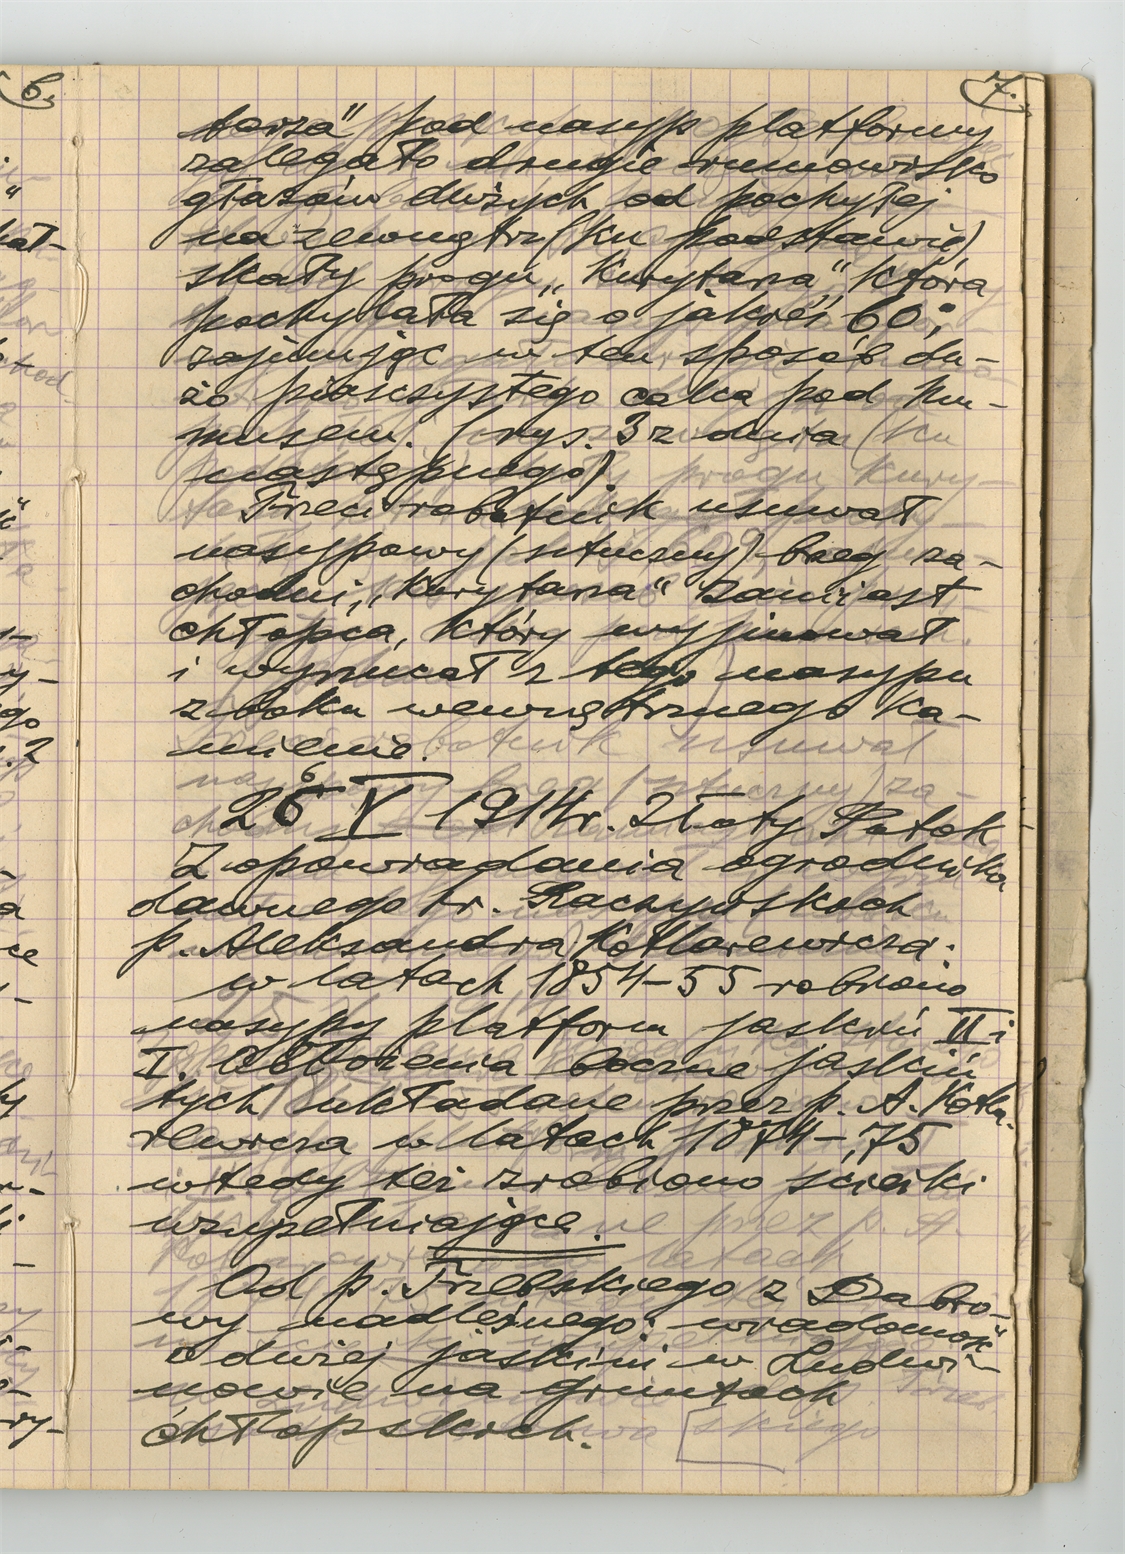 7.
tarza" pod nasyp platformy
zalegało drugie rumowisko
głazów dużych od pochyłej
na zewnątrz (ku podstawie)
skały progu „Kurytarza" która
pochylała się o jakieś 60°;
zajmując w ten sposób du-
żo piasczystego calca pod hu-
musem. (rys. 3 z dnia
następnego).
Trzeci robotnik usuwał
nasypowy (sztuczny) brzeg za-
chodni, „Kurytarza" zamiast
chłopca, który wyjmował
i wyrzucał z tego nasypu
z boku wewnętrznego ka-
mienie.
V 1914 r. Złoty Potok
Z opowiadania ogrodnika
dawnego hr. Raczyńskich
p. Aleksandra Kotlarewicza:
w latach 1854–55 robiono
nasypy platform jaskiń II i
I. Obłożenia boczne jaskiń
tych układane przez p. A. Kotla-
rewicza w latach 1874–75
wtedy też zrobiono ścieżki
uzupełniające.
Od p. Trzebskiego z Dąbro-
wy nadleśnego: wiadomość
o dużej jaskini w Ludwi-
nowie na gruntach
chłopskich.